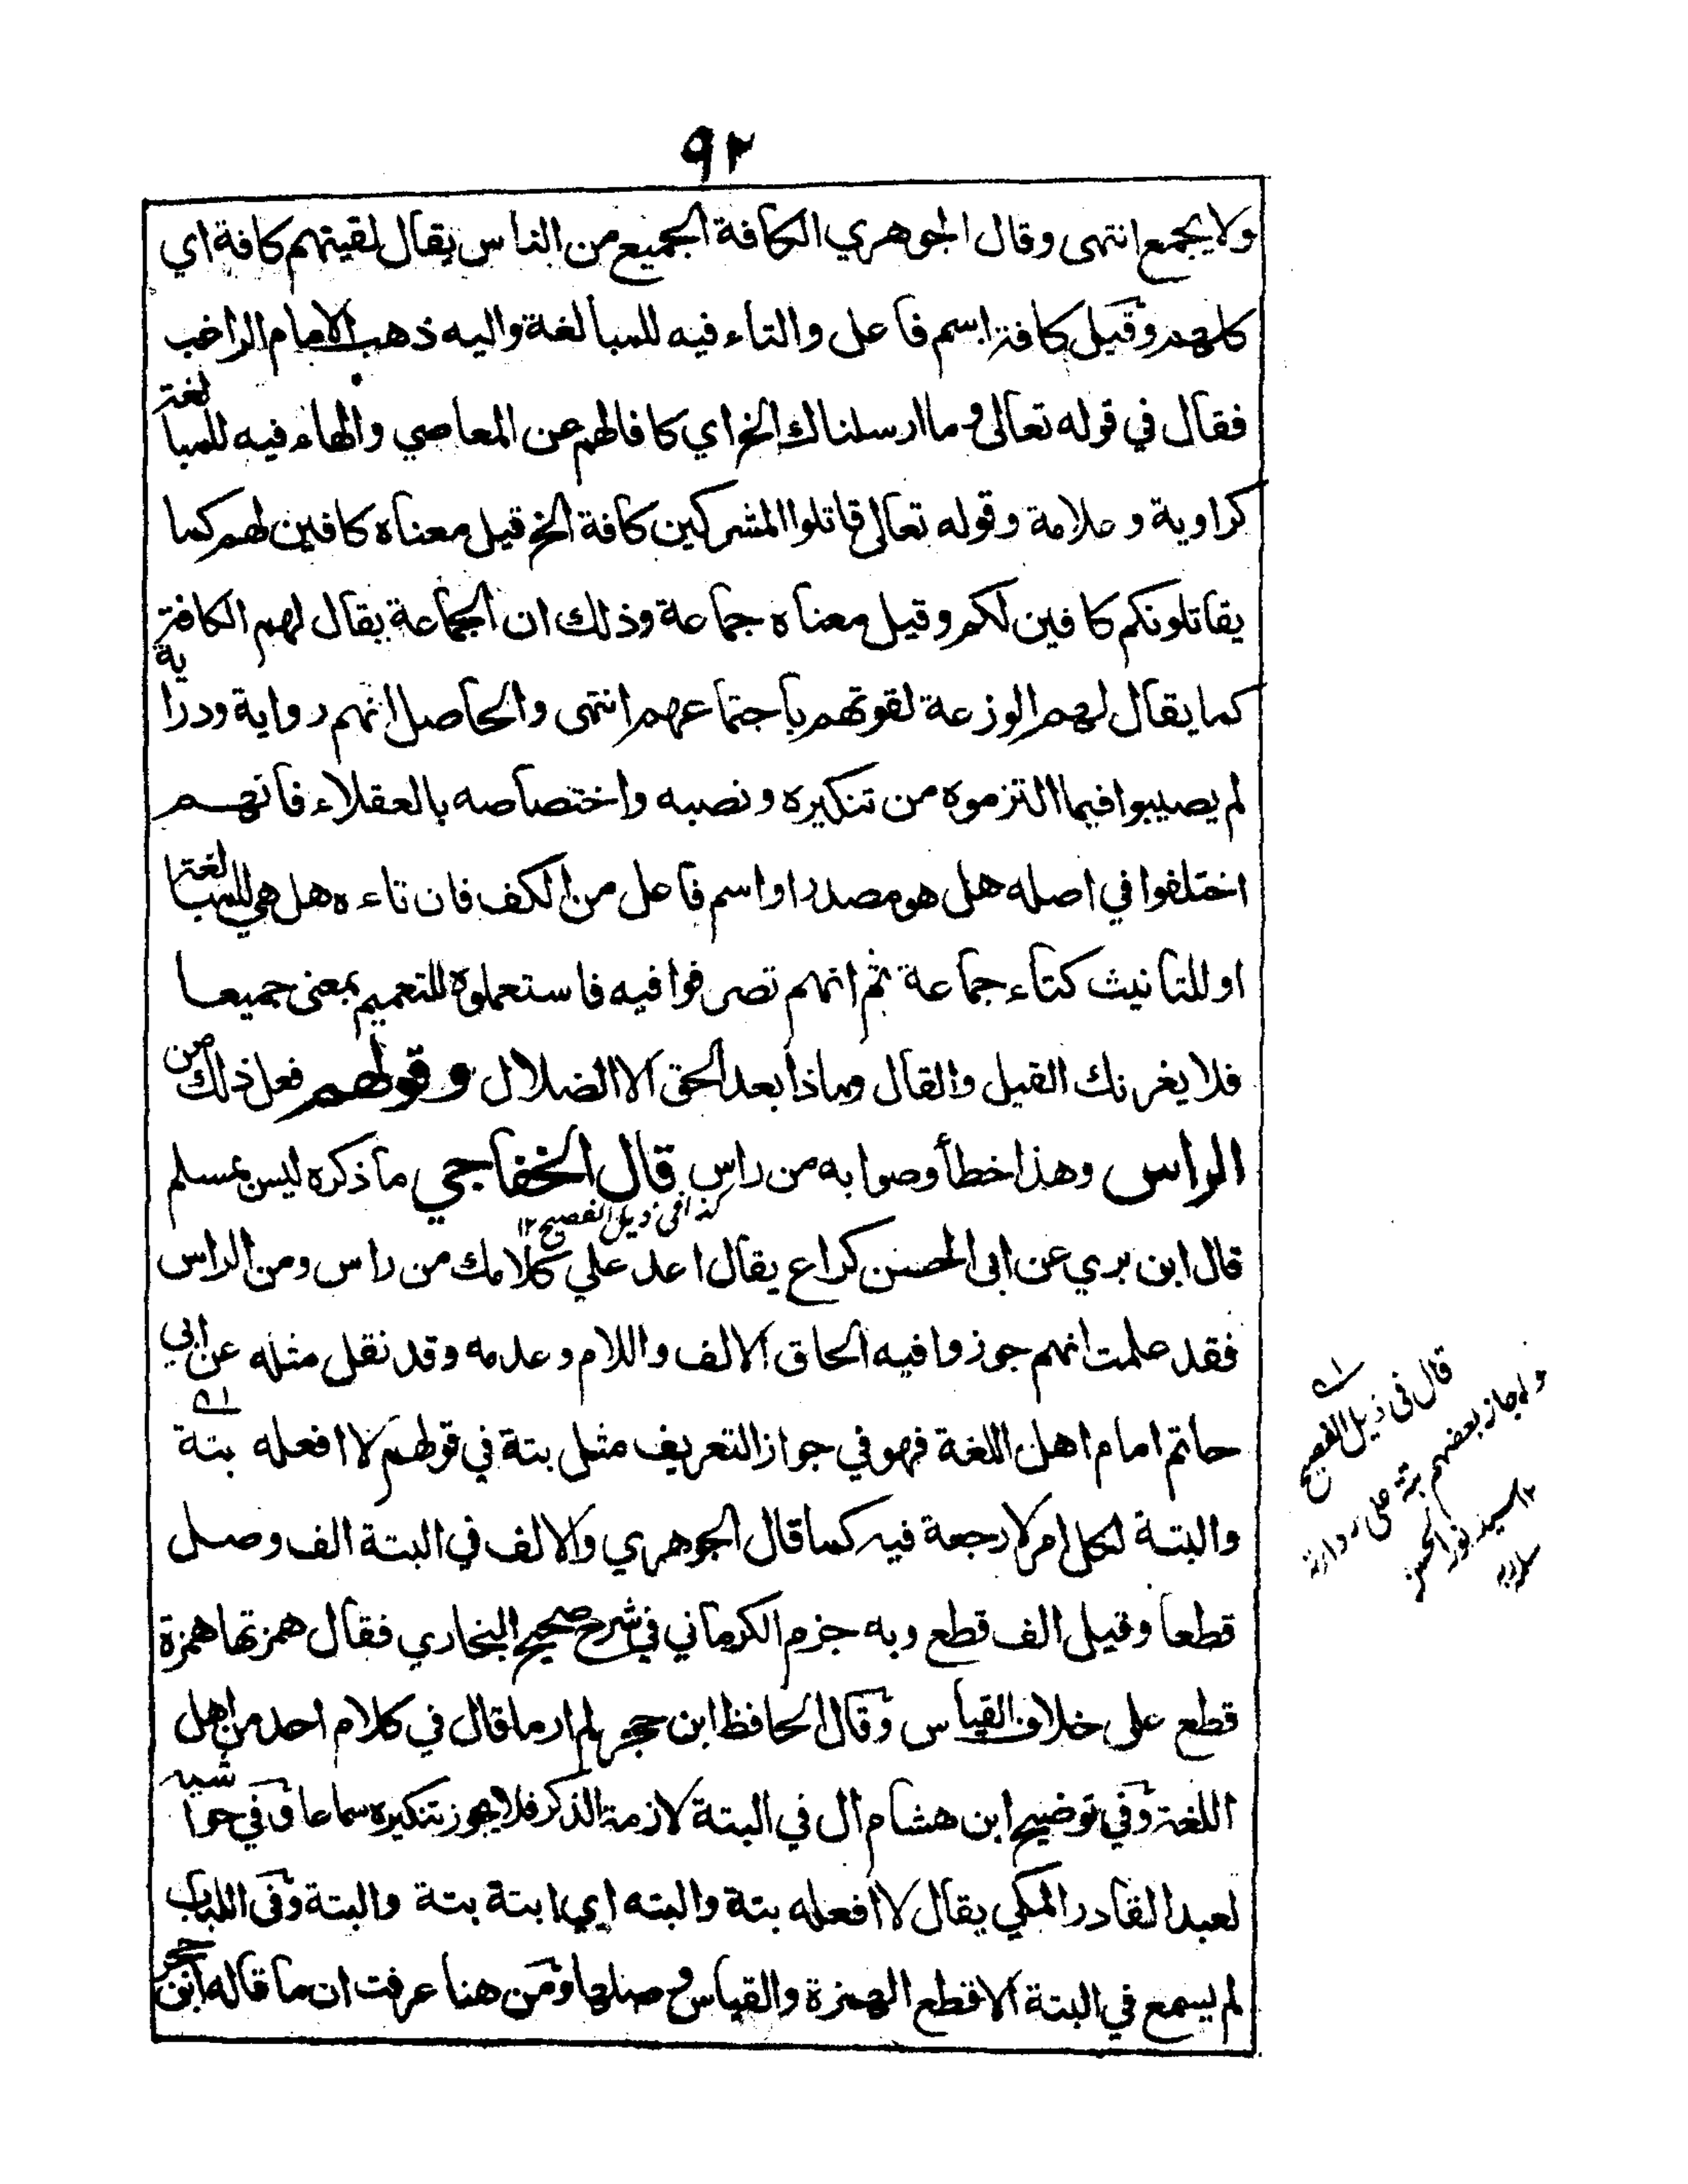 ٩٢
ولا يجمع انتهى وقال الجوهري الكافة الجميع من الناس يقال لقيتهم كافة اي
كلهم وقيل كافة اسم فاعل والتاء فيه للمبالغة واليه ذهب الامام الراغب
فقال في قوله تعالى وما ارسلناك الخ اي كافا لهم عن المعاصي والهاء فيه للمبالغة
كراوية وعلامة وقوله تعالى قاتلوا المشركين كافة الخ قيل معناه كافين لهم كما
يقاتلونكم كافين لكم وقيل معناه جماعة وذلك ان الجماعة يقال لهم الكافة
كما يقال لهم الوزعة لقوتهم باجتماعهم انتهى والحاصل انهم رواية ودراية
لم يصيبوا فيما التزموه من تنكيره ونصبه واختصاصه بالعقلاء فانهم
اختلفوا في اصله هل هو مصدر او اسم فاعل من الكف فان تاءه هل هي للمبالغة
او للتانيث كتاء جماعة ثم انهم تصرفوا فيه فاستعملوه للتعميم بمعنى جميعا
فلا يغرنك القيل والقال وماذا بعد الحق الا الضلال وقولهم فعل ذلك من
الراس وهذا خطأ وصوابه من راس قال الخفاجي ما ذكره ليس بمسلم
كذا في ذيل الفصيح ١٢
قال ابن بري عن ابي الحسن كراع يقال اعد علي كلامك من راس ومن الراس
فقد علمت انهم جوزوا فيه الحاق الالف واللام وعدمه وقد نقل مثله عن ابي
حاتم امام اهل اللغة فهو في جواز التعريف مثل بتة في قولهم لا افعله بتة
والبتة لكل امر لا رجعة فيه كما قال الجوهري والالف في البتة الف وصل
قطعا وقيل الف قطع وبه جزم الكرماني في شرح صحيح البخاري فقال همزتها همزة
قطع على خلاف القياس وقال الحافظ ابن حجر لم ار ما قال في كلام احد من اهل
اللغة وفي توضيح ابن هشام ال في البتة لازمة الذكر فلا يجوز تنكيره سماعا وفي حواشيه
لعبد القادر المكي يقال لا افعله بتة والبته اي ابتة بتة والبتة وفي اللباب
لم يسمع في البتة الا قطع الهمزة والقياس وصلها ومن هنا عرفت ان ما قاله ابن حجر
قال في ذيل الفصيح
واجاز بعضهم بتة على
السيد نور الحسن